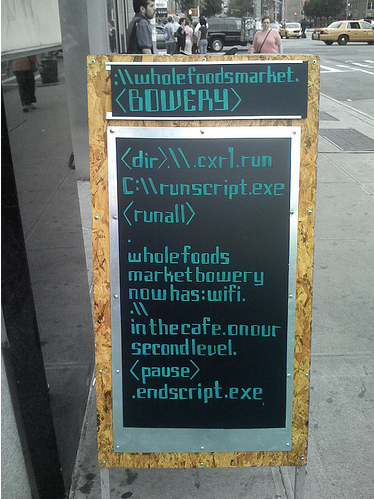 :\\wholefoodsmarket.
<BOWERY>
<dir>.\\.cxr1.run
C:\\runscript.exe
<runall>
.
wholefoods
marketbowery
nowhas:wifi.
.\\
inthecafe.onour
secondlevel.
<pause>
.endscript.exe